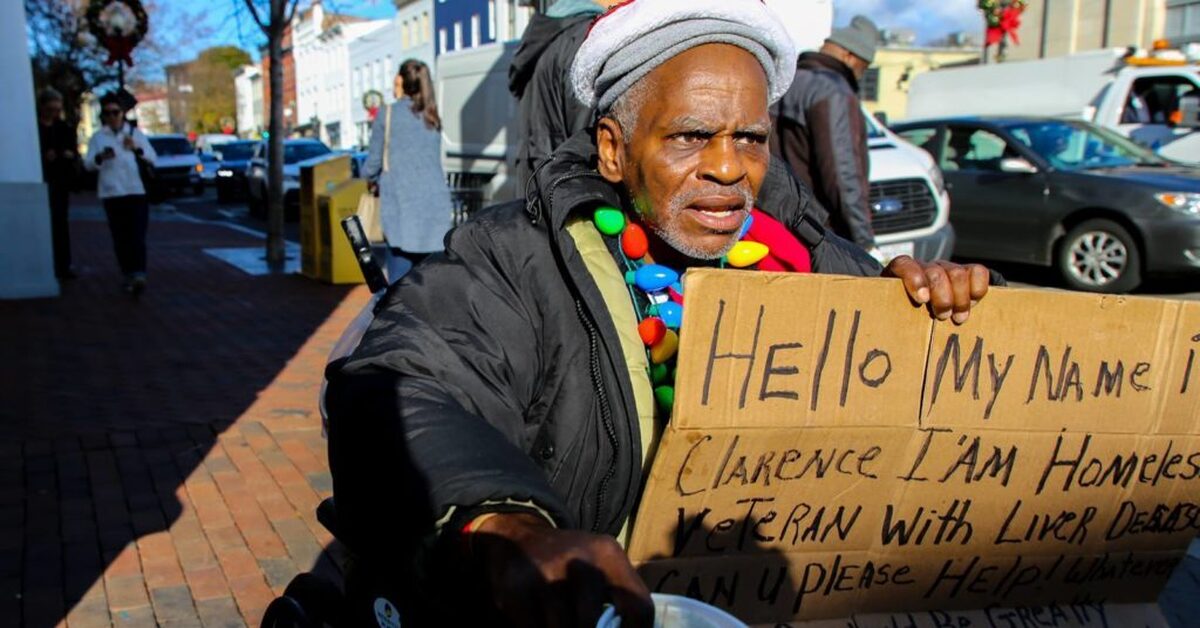 Hello My Name i
Clarence I'Am Homeles
Veteran With Liver
Can U please Help! Whatever
Be Greatly